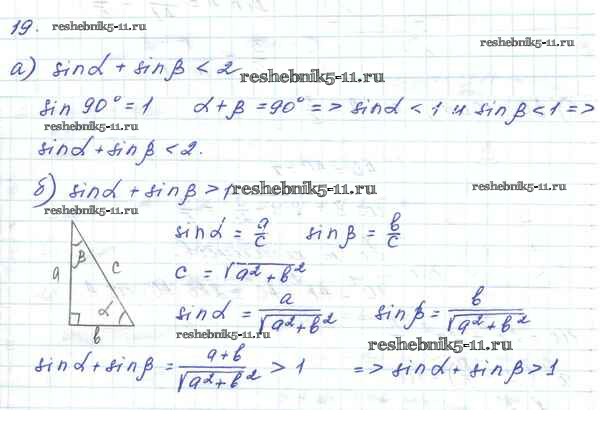 19. reshebnik5-11.ru
а) sinα + sinβ < 2
reshebnik5-11.ru
sin 90° = 1 α + β = 90° => sinα < 1 и sinβ < 1 =>
reshebnik5-11.ru reshebnik5-11.ru
sinα + sinβ < 2.
б) sinα + sinβ > 1 reshebnik5-11.ru reshebnik5-11.ru
reshebnik5-11.ru
sinα = a/c sinβ = b/c
β
a c
c = √a²+b²
α
b
sinα = a/√a²+b² sinβ = b/√a²+b²
reshebnik5-11.ru reshebnik5-11.ru
sinα + sinβ = a+b/√a²+b² > 1 => sinα + sinβ > 1